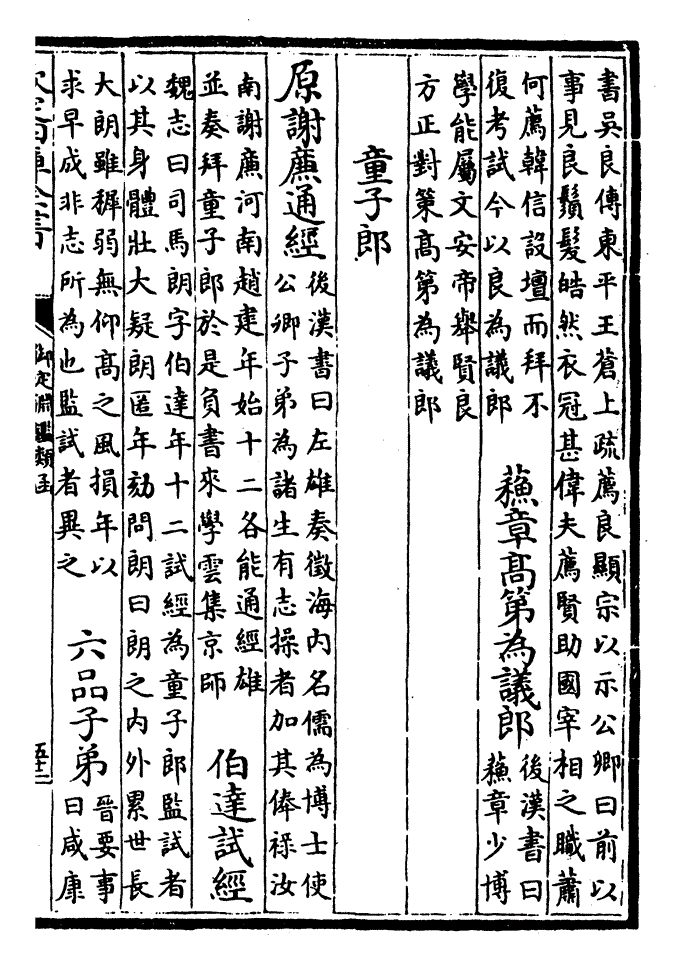 書吳良傳東平王蒼上疏薦良顯宗以示公卿曰前以
事見良鬚髮皓然衣冠甚偉夫薦賢助國宰相之職蕭
何薦韓信設壇而拜不
復考試今以良為議郎
蘓章髙第為議郎
後漢書曰
蘓章少博
學能屬文安帝舉賢良
方正對策髙第為議郎
童子郎
原謝廉通經
後漢書曰左雄奏徵海内名儒為博士使
公卿子弟為諸生有志操者加其俸禄汝
南謝廉河南趙建年始十二各能通經雄
並奏拜童子郎於是負書來學雲集京師
伯達試經
魏志曰司馬朗字伯達年十二試經為童子郎監試者
以其身體壯大疑朗匿年劾問朗曰朗之内外累世長
大朗雖穉弱無仰髙之風損年以
求早成非志所為也監試者異之
六品子弟
晉要事
曰咸康
欽定四庫全書
御定淵鑑類函